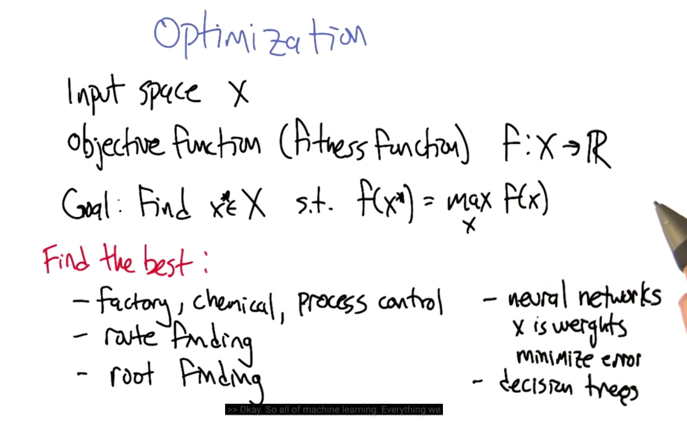 Optimization
Input space X
Objective function (fitness function) f: X → ℝ
Goal: Find x* ∈ X s.t. f(x*) = max f(x)
x
Find the best:
- factory, chemical, process control
- route finding
- root finding
- neural networks
x is weights
minimize error
- decision trees
>> Okay. So all of machine learning. Everything we